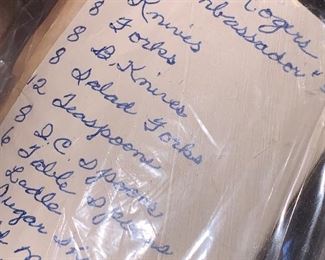 Rogers
Ambassador
8 Knives
8 Forks
8 B. Knives
8 Salad Forks
2 Teaspoons
8 D.C. Spoons
6 Table Spoons
Ladle
Sugar